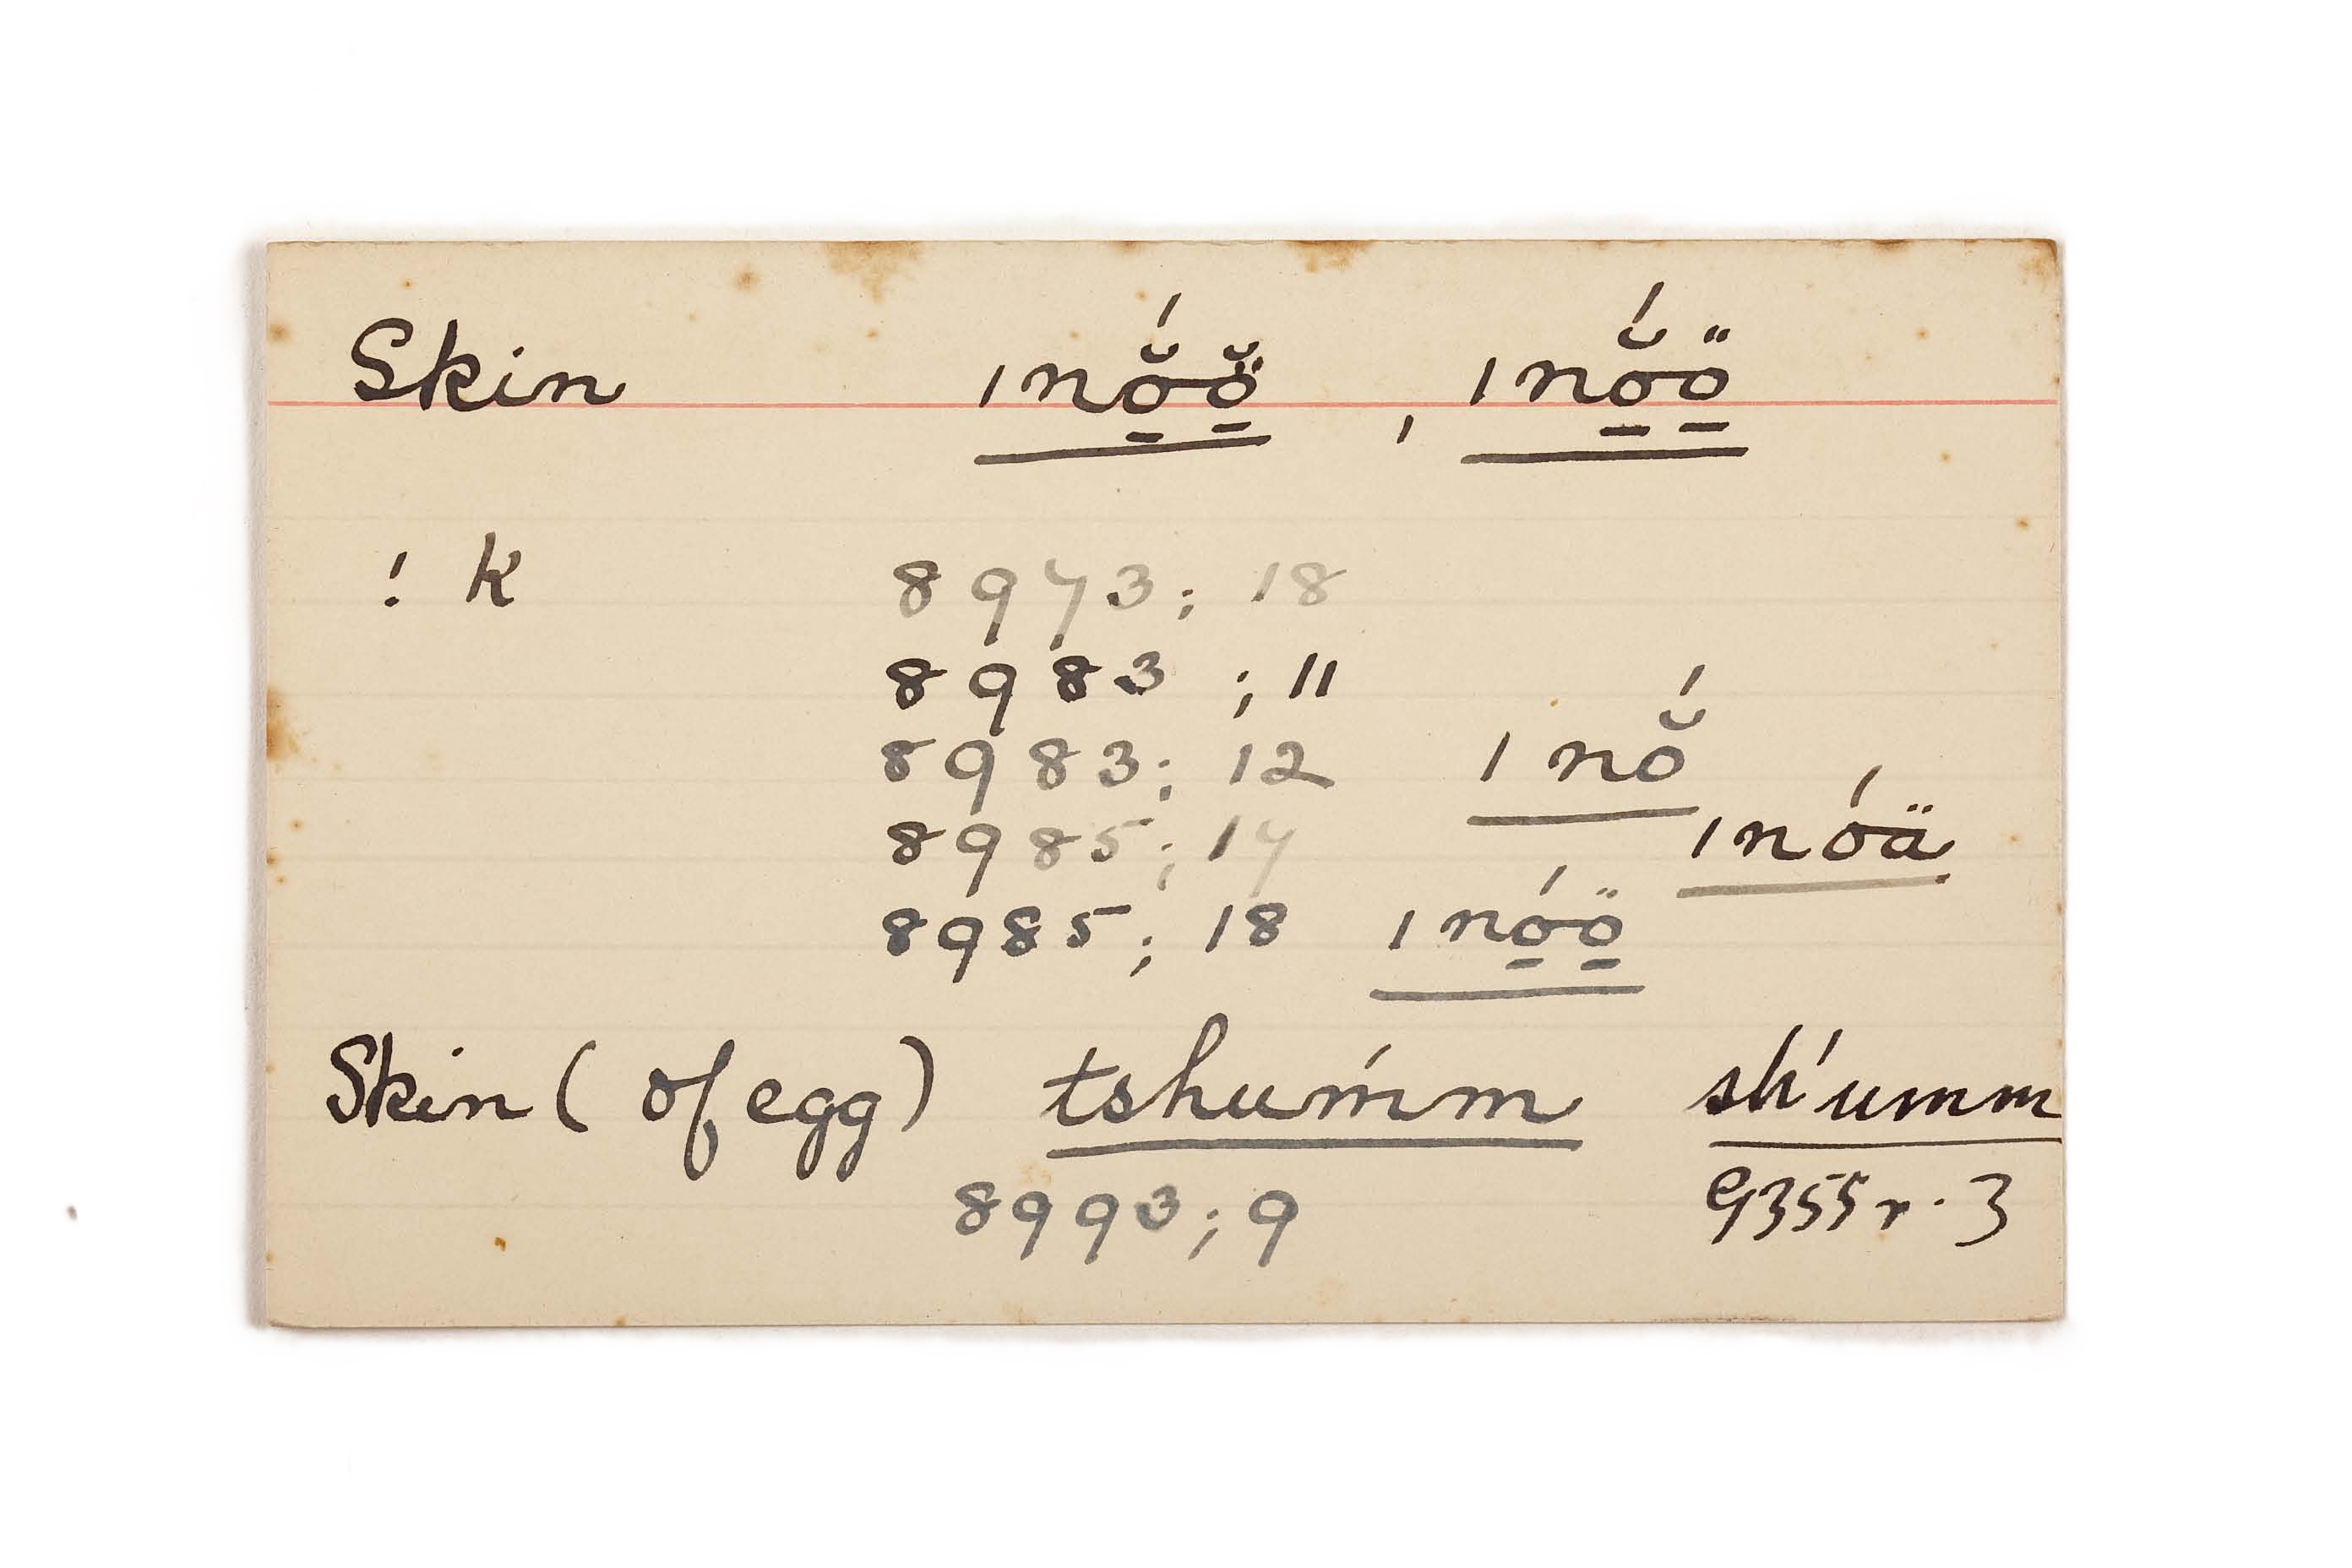 Skin ǀnŏ̱́ö̱̆ , ǀnŏ̱́ö̱
! k 8973; 18
8983 ; 11
8983; 12 ǀnŏ́
8985; 17 ǀnóä
8985; 18 ǀnó̱ö̱
Skin ( of egg ) tshum̍m sh'umm
8993; 9 9355 r. 3